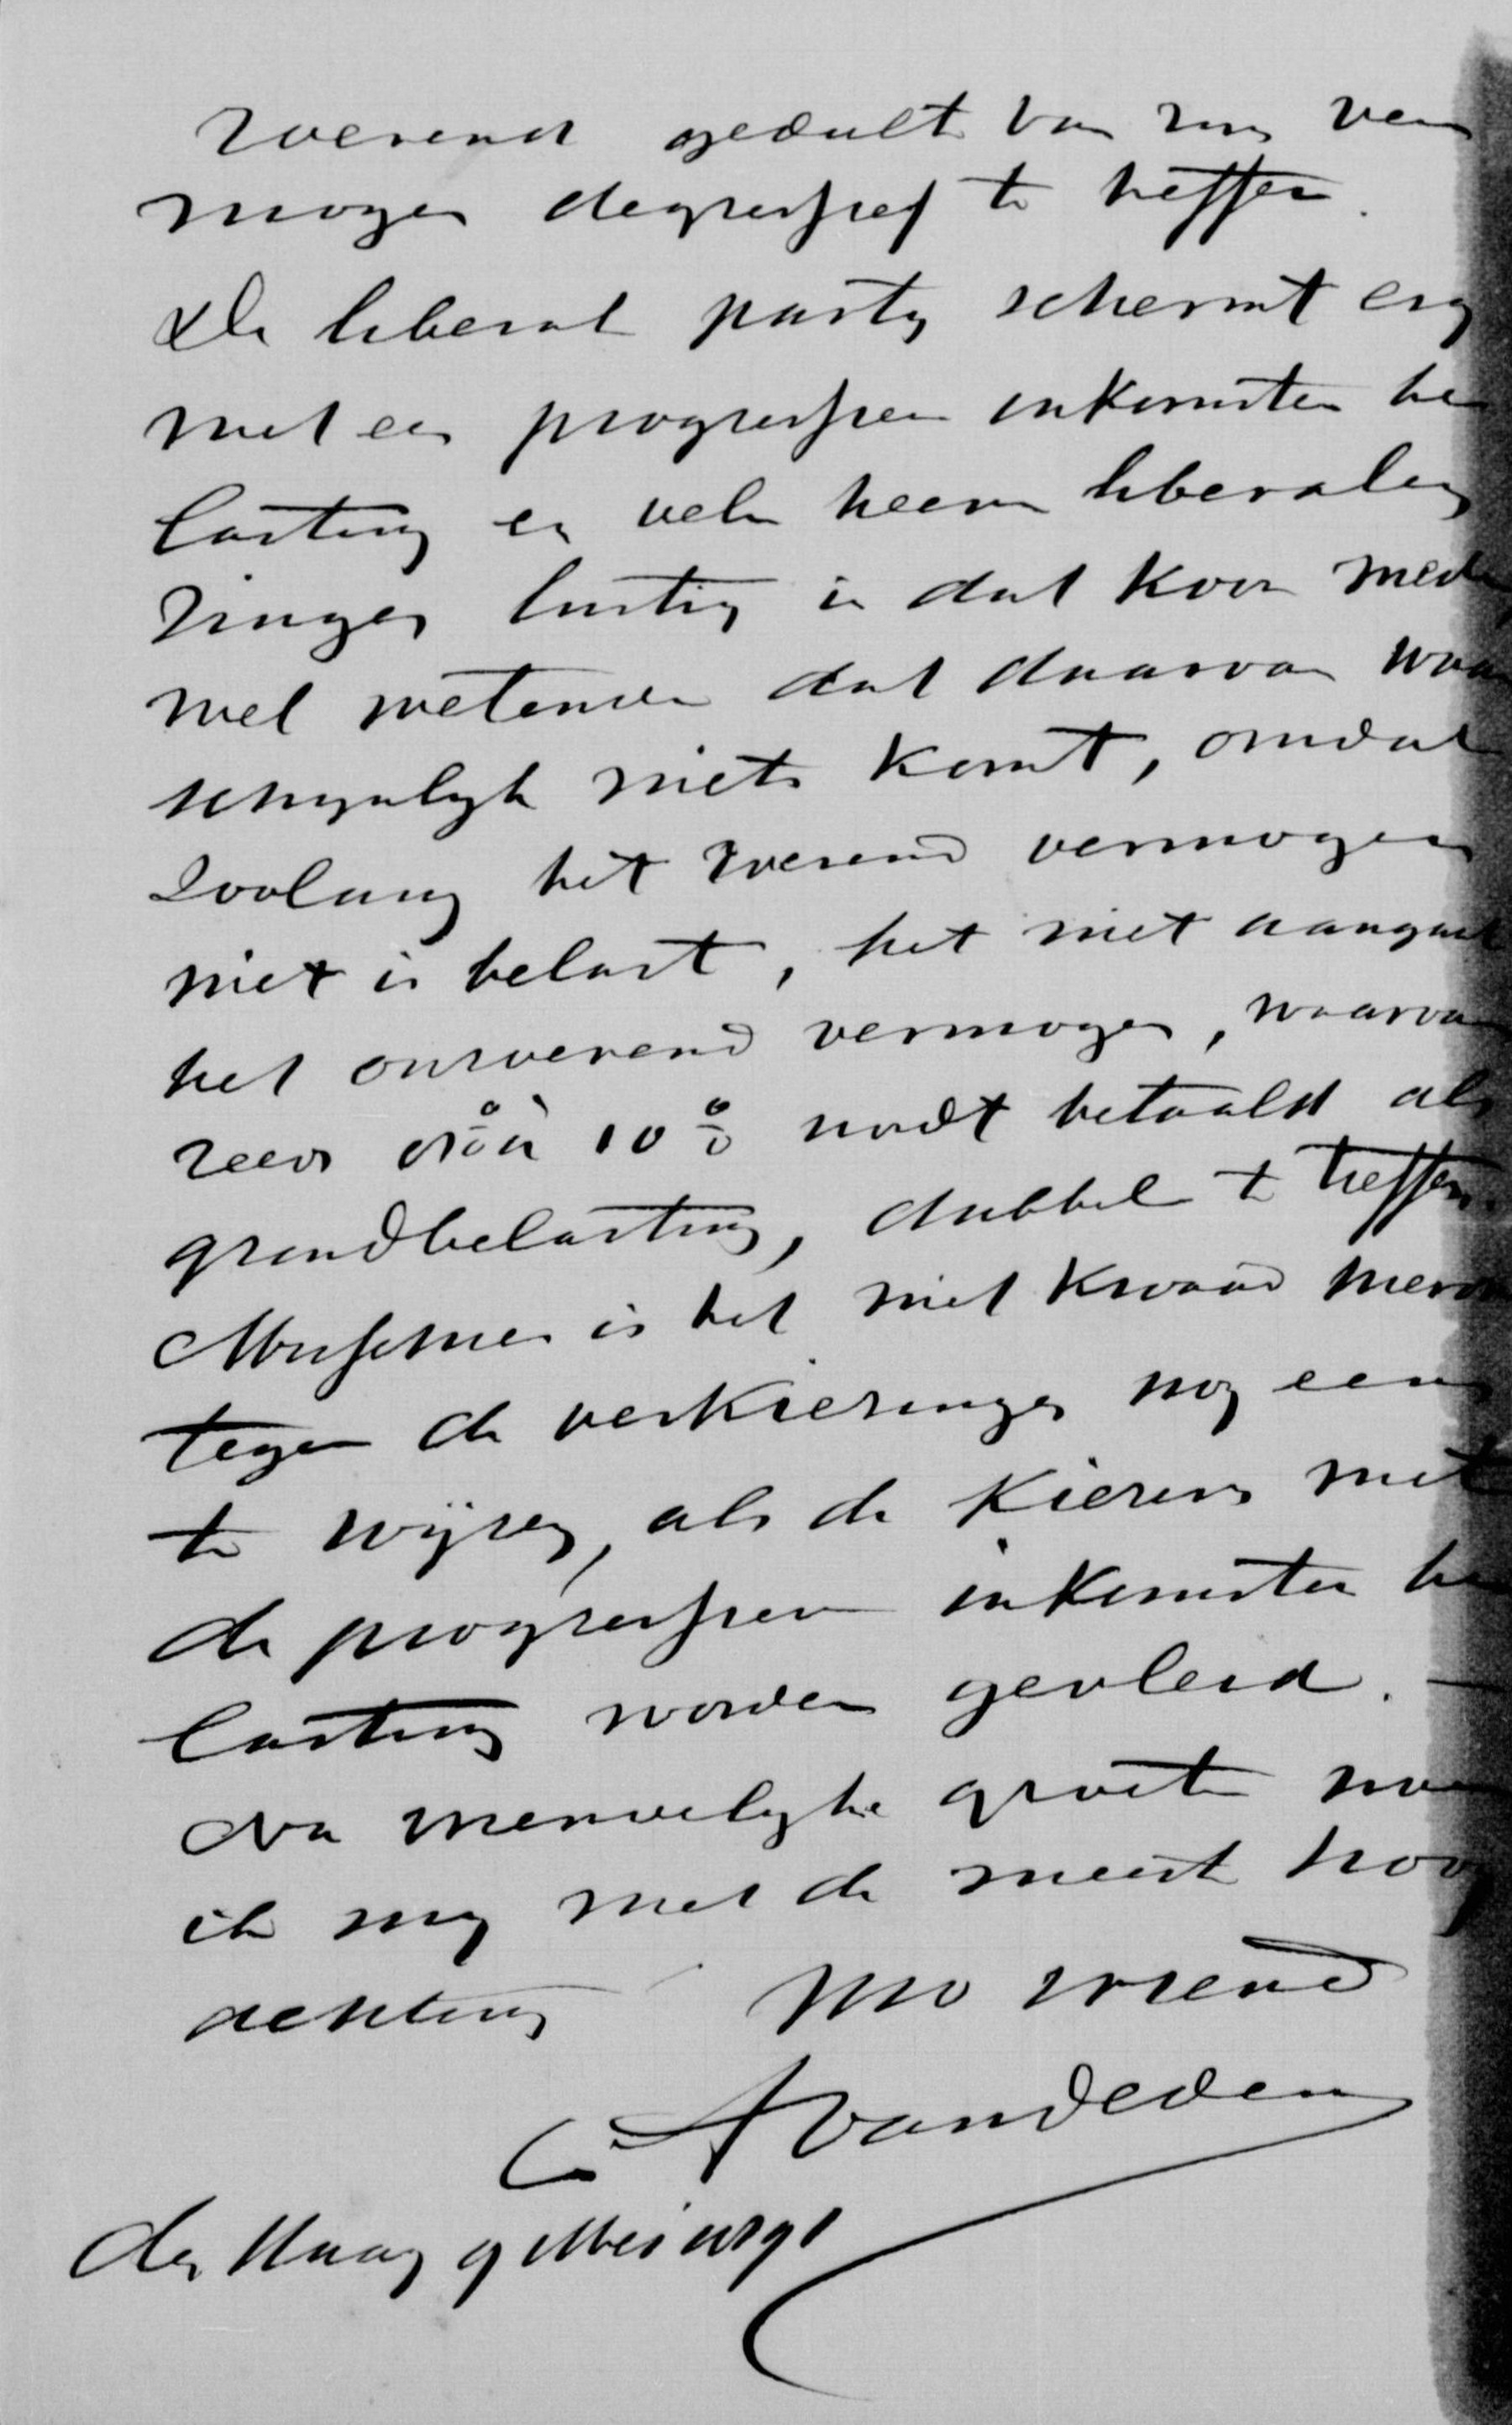 roerend gedeelt van zyn ver
mogen degressief te heffen.
De liberale party schermt erg
met een progressieve inkomsten be
lasting en vele heeren liberalen
zingen lustig in dat koor mede
wel wetende dat daarvan waar
schynlyk niets komt, omdat
Zoolang het roerend vermogen
niet is belast, het niet aangaat
het onroerend vermogen, waarvan
reeds 10 % wordt betaald als
grondbelasting, dubbel te treffen.
Misschien is het niet kwaad hierop
tegen de verkiezingen nog eens
te wijzen, als de kiezers met
de progressieve inkomsten be
lasting worden gevleid. —
Na vriendelyke groete noem
ik my met de meeste hoog
achting Uw vriend
van Dedem
den Haag 9 Mei 1891